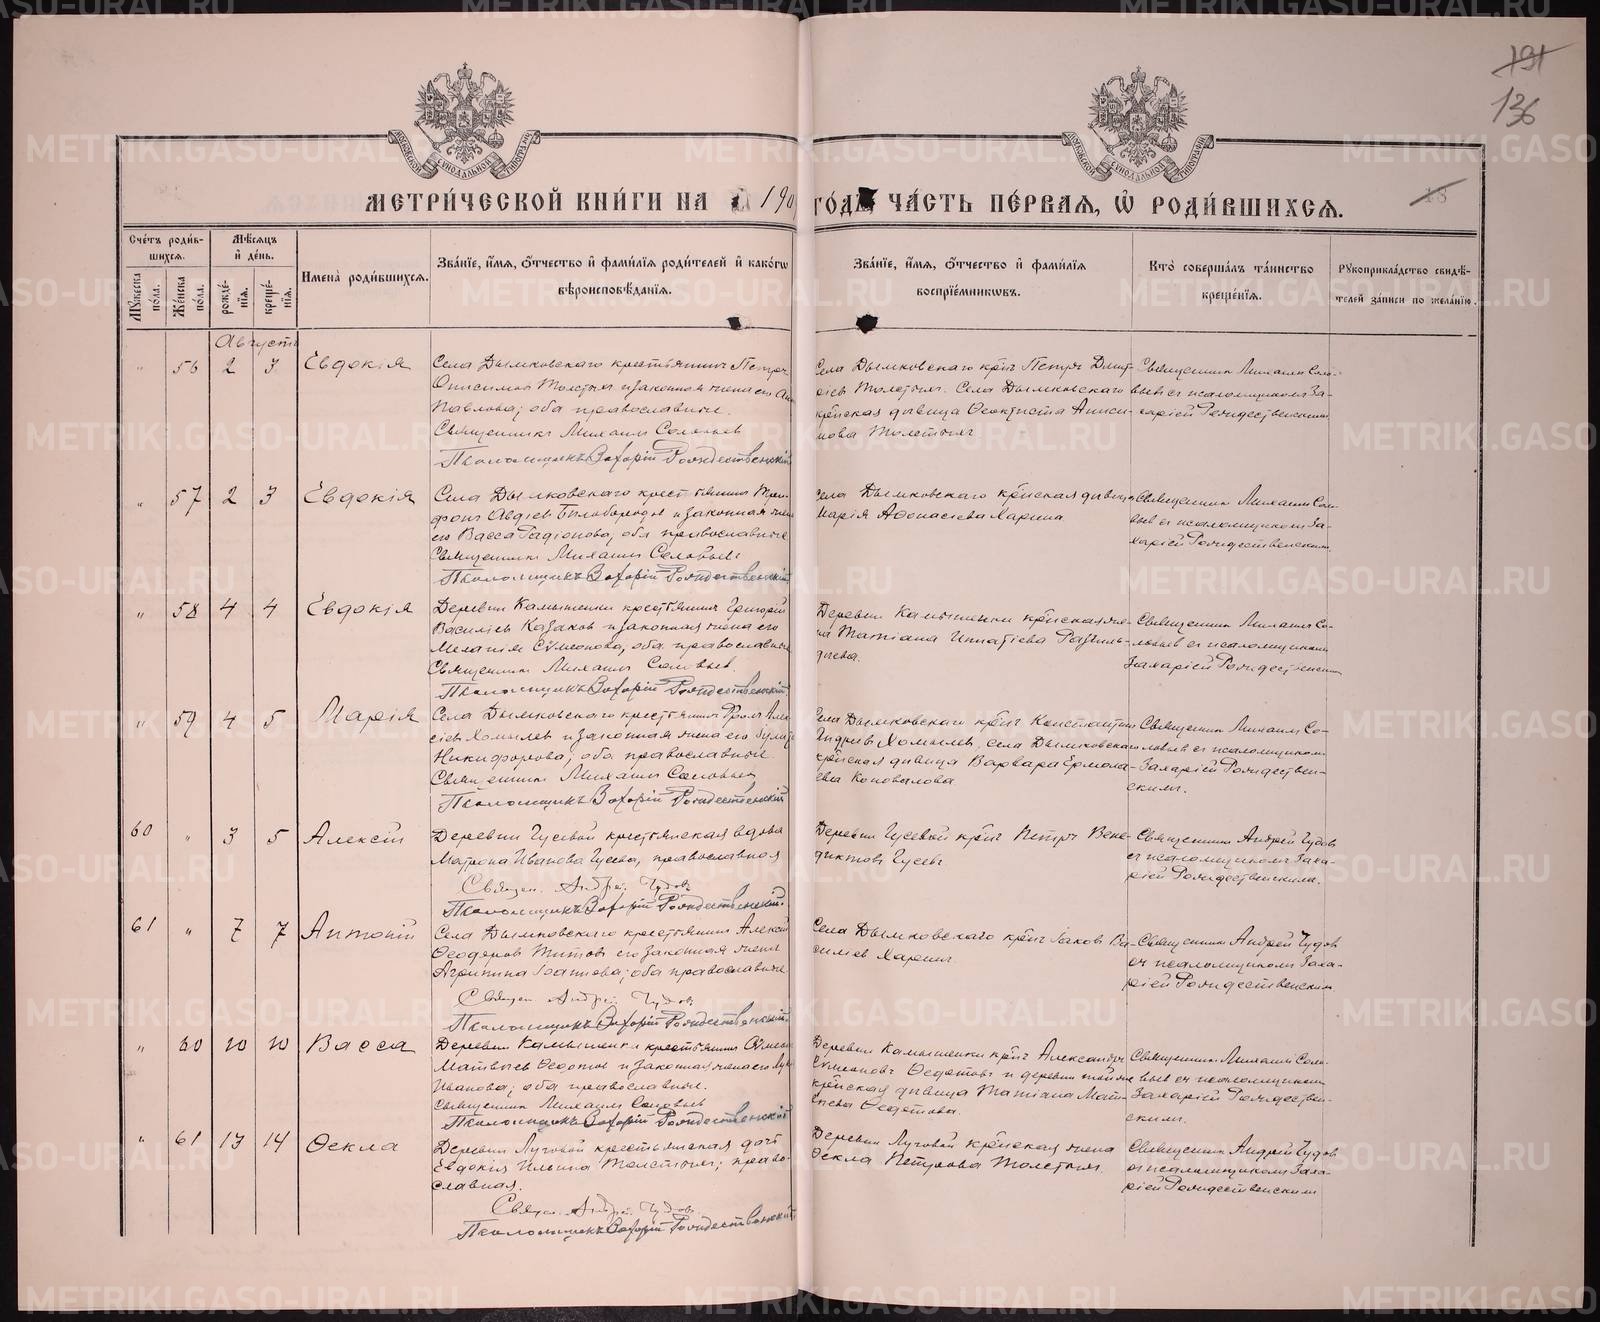 191
136
МЕТРИ́ЧЕСКОЙ КНИ́ГИ НА 190 ГО́ДЪ, ЧА́СТЬ ПЕ́РВАЯ, Ѡ РОДИ́ВШИХСЯ.
18
Сче́тъ роди́в-
шихся.
Мѣсяцъ
и де́нь.
Мꙋжеска по́ла.
Же́нска по́ла.
рожде́-
нїя.
креще́-
нїя.
Имена̀ роди́вшихся.
Зва́нїе, и́мя, ѻ́тчество и фами́лїя роди́телей и како́гѡ
вѣроисповѣ́данїя.
Зва́нїе, и́мя, ѻ́тчество и фами́лїя
воспрїе́мникѡвъ.
Кто̀ соверша́лъ та́инство
креще́нїя.
Рꙋкоприкла́дство свидѣ́-
телей за́писи по жела́нїю.
Августъ
" 56 2 3 Евдокія
Села Дымковскаго крестьянинъ Петръ
Онисимовъ Толстыхъ и законная жена его
Павлова; оба православные.
Священникъ Михаилъ Соловьевъ
Псаломщикъ Захарій Рождественскій
Села Дымковскаго кр̃нъ Петръ Дмит-
ріевъ Толстыхъ. Села Дымковскаго
кр̃нская дѣвица Ѳеоктиста Аниси-
мова Толстыхъ
Священникъ Михаилъ Соло-
вьевъ съ псаломщикомъ За-
харіей Рождественскимъ
" 57 2 3 Евдокія
Села Дымковскаго крестьянинъ
Авдіевъ Бѣлобородовъ и законная жена
его Васса Родіонова, оба православные
Священникъ Михаилъ Соловьевъ
Псаломщикъ Захарій Рождественскій
Села Дымковскаго кр̃нская дѣвица
Марія Аѳонасіева Харина
Священникъ Михаилъ Соло-
вьевъ съ псаломщикомъ За-
харіей Рождественскимъ
" 58 4 4 Евдокія
Деревни Камышенки крестьянинъ Григорій
Василіевъ Казаковъ и законная жена его
Меланія Сѵмеонова, оба православные
Священникъ Михаилъ Соловьевъ
Псаломщикъ Захарій Рождественскій
Деревни Камышенки кр̃нская же-
на Татіана Игнатіева
Священникъ Михаилъ Со-
ловьевъ съ псаломщикомъ
Захаріей Рождественскимъ
" 59 4 5 Марія
Села Дымковскаго крестьянинъ Фролъ Алек-
сіевъ Хомылевъ и законная жена его
Никифорова, оба православные
Священникъ Михаилъ Соловьевъ
Псаломщикъ Захарій Рождественскій
Села Дымковскаго кр̃нъ Константинъ
Андреевъ Хомылевъ, села Дымковскаго
кр̃нская дѣвица Варвара Ермола-
ева Коновалова
Священникъ Михаилъ Со-
ловьевъ съ псаломщикомъ
Захаріей Рождествен-
скимъ.
60 " 3 5 Алексій
Деревни Гусевой крестьянская вдова
Матрона Иванова Гусева, православная
Священ. Андрей Чудовъ
Псаломщикъ Захарій Рождественскій
Деревни Гусевой кр̃нъ Петръ Вене-
диктовъ Гусевъ
Священникъ Андрей Чудовъ
съ псаломщикомъ Заха-
ріей Рождественскимъ.
61 " 7 7 Антоній
Села Дымковскаго крестьянинъ Алексій
Ѳеодоровъ Титовъ его законная жена
Агриппина Іоаннова; оба православные
Священ. Андрей Чудовъ
Псаломщикъ Захарій Рождественскій
Села Дымковскаго кр̃нъ Іаковъ Ва-
силіевъ Харинъ.
Священникъ Андрей Чудовъ
съ псаломщикомъ Заха-
ріей Рождественскимъ
" 60 10 10 Васса
Деревни Камышенки крестьянинъ Сѵмеонъ
Матвіевъ Ѳедотовъ и законная жена его
Иванова; оба православные.
Священникъ Михаилъ Соловьевъ
Псаломщикъ Захарій Рождественскій
Деревни Камышенки кр̃нъ Александръ
Сѵмеоновъ Ѳедотовъ и деревни той же
кр̃нская дѣвица Татіана Мат-
вѣева Ѳедотова.
Священникъ Михаилъ Соло-
вьевъ съ псаломщикомъ
Захаріей Рождествен-
скимъ.
" 61 13 14 Ѳекла
Деревни Луговой крестьянская дочь
Евдокія Ильина Толстыхъ; право-
славная.
Священ. Андрей Чудовъ
Псаломщикъ Захарій Рождественскій
Деревни Луговой кр̃нская жена
Ѳекла Петрова Толстыхъ.
Священникъ Андрей Чудовъ
съ псаломщикомъ Заха-
ріей Рождественскимъ
METRIKI.GASO-URAL.RU